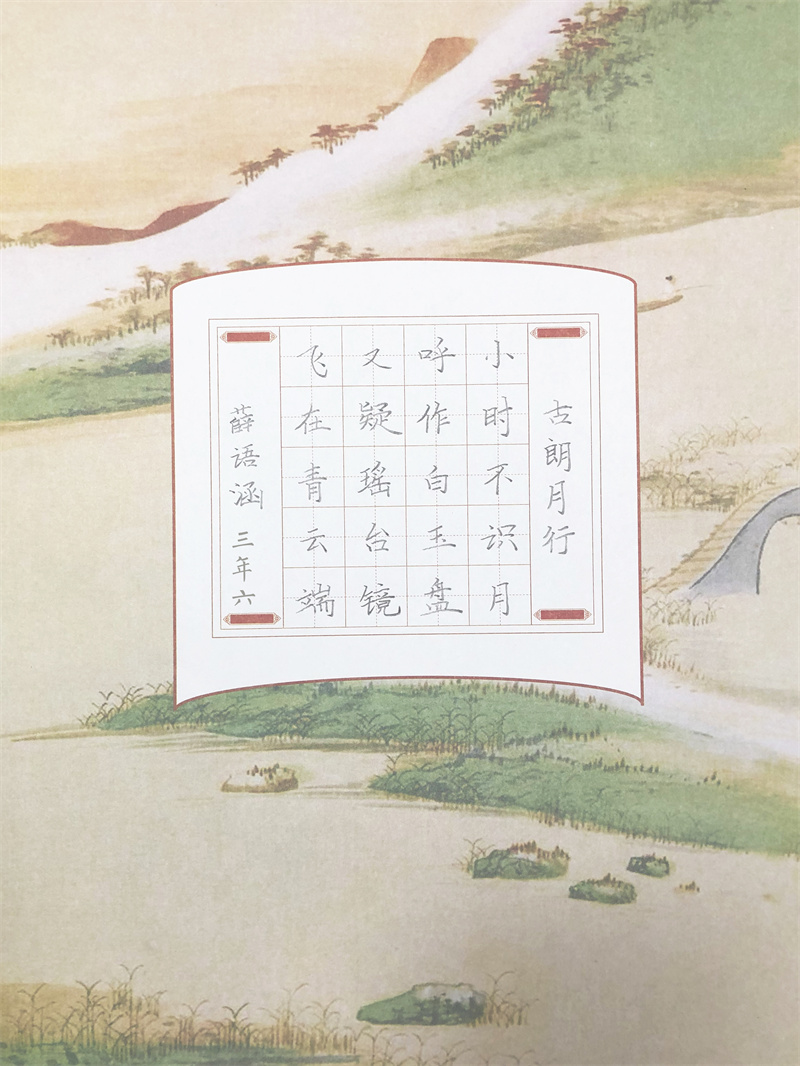 古朗月行
小时不识月
呼作白玉盘
又疑瑶台镜
飞在青云端
薛语涵 三年六